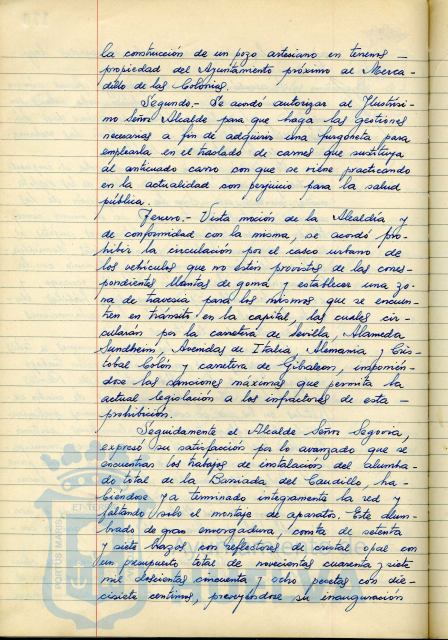 la construcción de un pozo artesiano en terrenos —
propiedad del Ayuntamiento próximo al Merca-
dillo de las Colonias.
Segundo.- Se acordó autorizar al Ilustrísi-
mo Señor Alcalde para que haga las gestiones
necesarias a fin de adquirir una furgoneta para
emplearla en el traslado de carnes que sustituya
al anticuado carro con que se viene practicando
en la actualidad con perjuicio para la salud
pública.
Tercero.- Vista moción de la Alcaldía y
de conformidad con la misma, se acordó pro-
hibir la circulación por el casco urbano de
los vehículos que no estén provistos de las corres-
pondientes llantas de goma y establecer una zo-
na de travesía para los mismos que se encuen-
tren en tránsito en la capital, los cuales cir-
cularán por la carretera de Sevilla, Alameda
Sundheim, Avenidas de Italia, Alemania y Cris-
tobal Colón y carretera de Gibraleon, imponién-
dose las sanciones máximas que permita la
actual legislación a los infractores de esta —
prohibición.
Seguidamente el Alcalde Señor Segovia,
expresó su satisfacción por lo avanzado que se
encuentran los trabajos de instalación del alumbra-
do total de la Barriada del Caudillo, ha-
biéndose ya terminado íntegramente la red y
faltando solo el montaje de aparatos. Este alum-
brado de gran envergadura, consta de setenta
y siete brazos, con reflectores de cristal opal con
un presupuesto total de novecientas cuarenta y siete
mil doscientas cincuenta y ocho pesetas con die-
cisiete centimos, preveyendose su inauguración
PORTUS MARIS